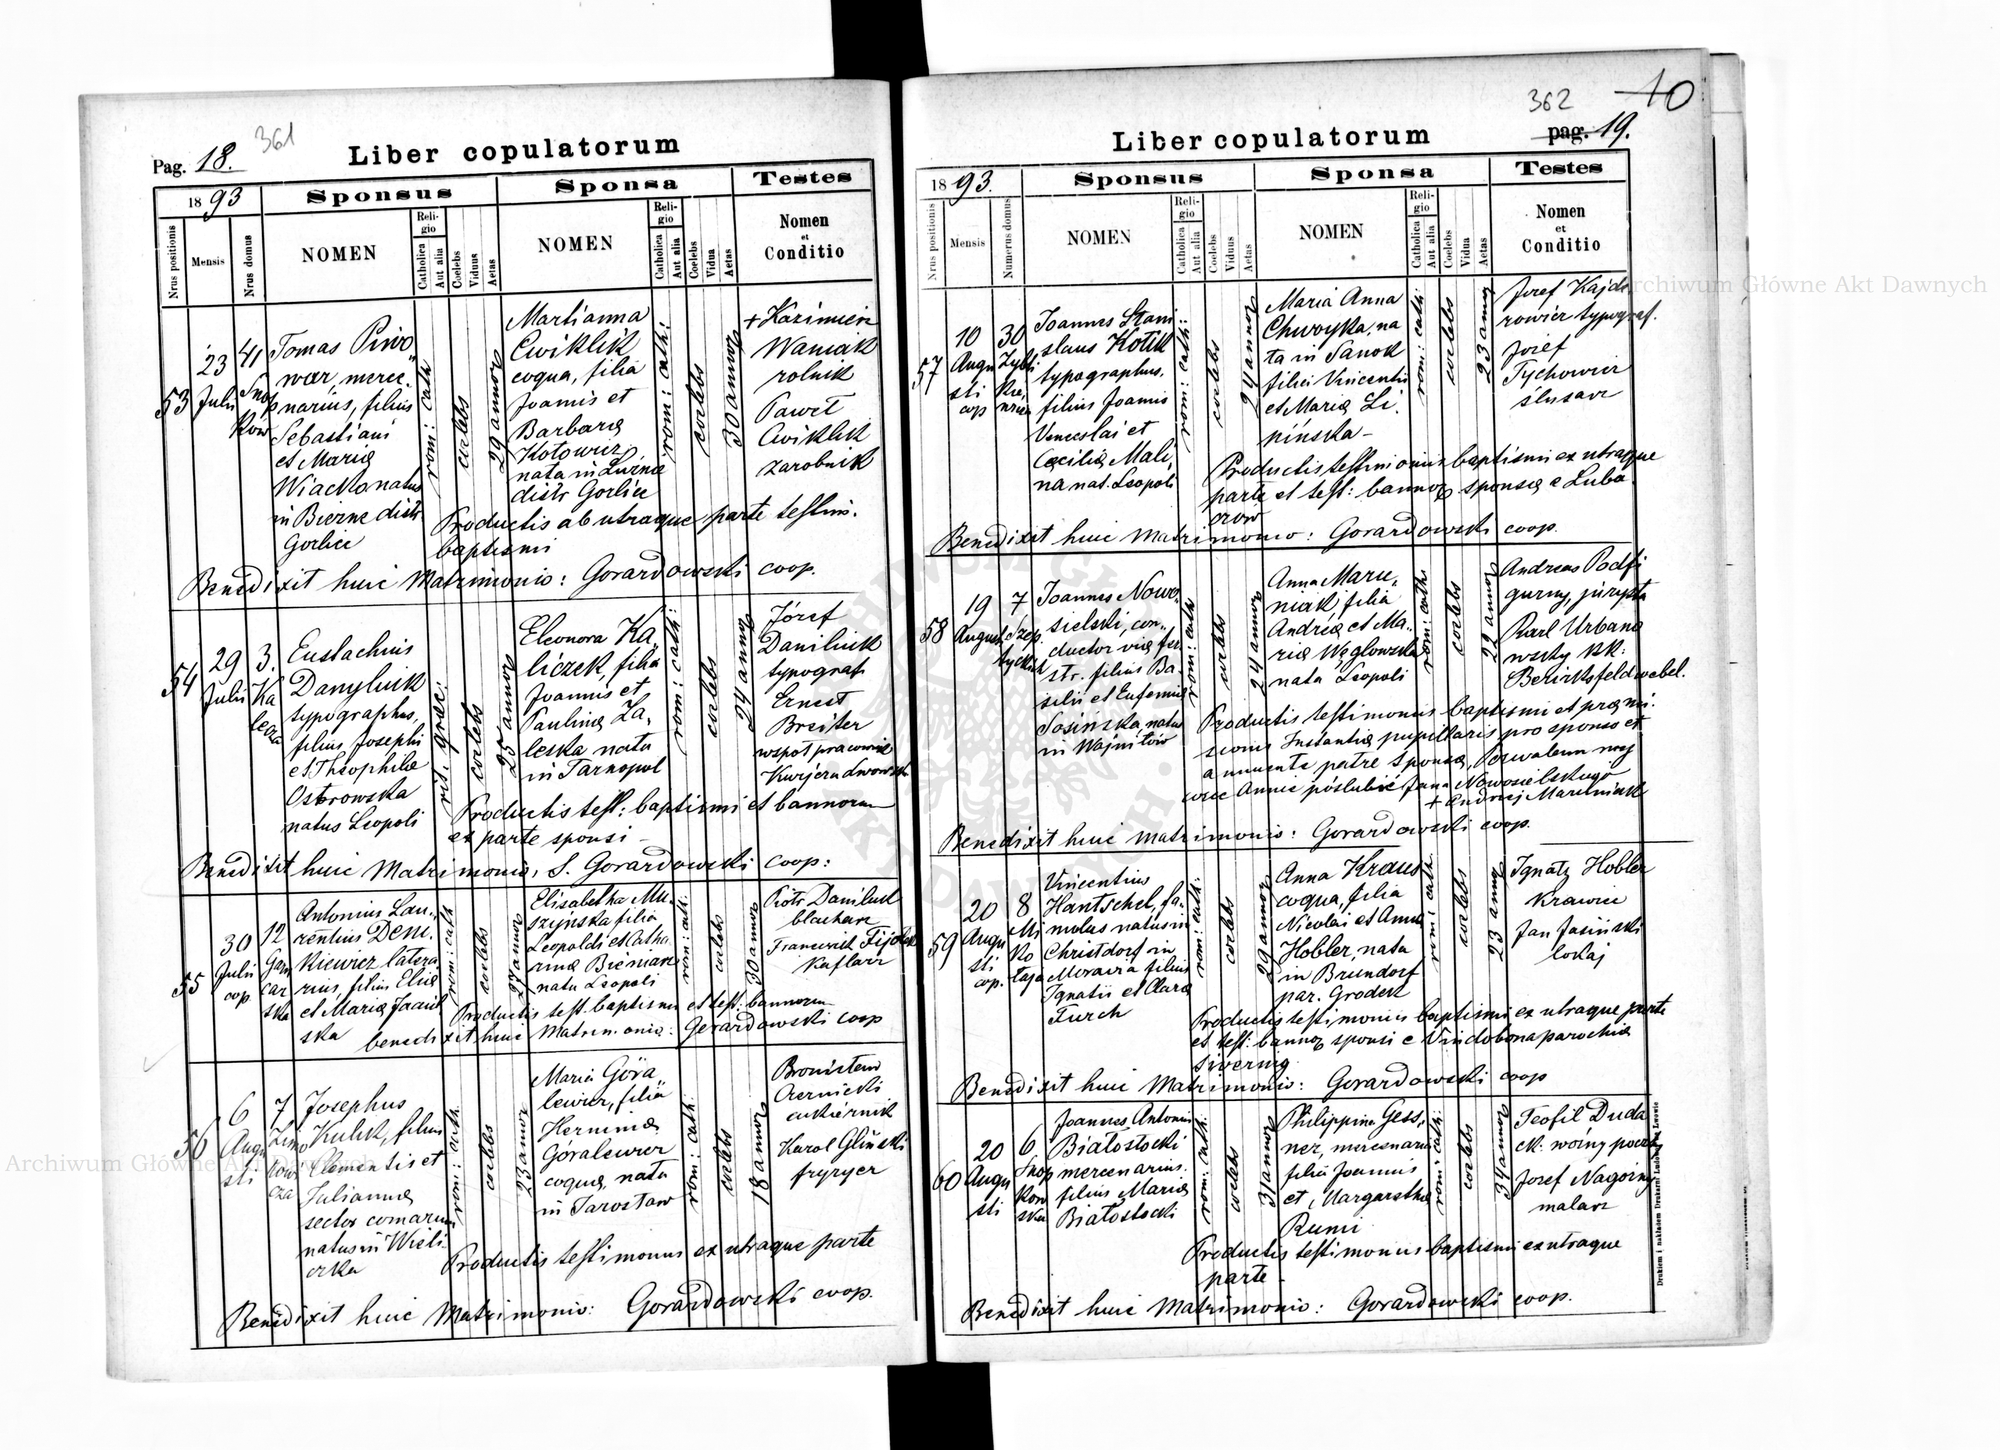 Pag. 18. 361
Liber copulatorum
1893
Sponsus
Sponsa
Testes
Nrus positionis
Mensis
Nrus domus
NOMEN
Religio
Catholica
Aut alia
Coelebs
Viduus
Aetas
NOMEN
Religio
Catholica
Aut alia
Coelebs
Vidua
Aetas
Nomen
et
Conditio
53
23
Julii
41
Snop
kow
Tomas Piwo
war, merce,
narius, filius
Sebastiani
et Maria
Wiacko natus
in Bieczne distr
Gorlice
rom: cath:
coelebs
29 annor
Marianna
Cwiklik
coqua, filia
Joannis et
Barbara
Kotowicz
nata in Luzna
distr Gorlice
rom: cath:
coelebs
30 annor
+ Kazimierz
Waniak
rolnik
Paweł
Cwiklik
zarobnik
Productis ab utraque parte testim.
baptismi
Benedixit huic Matrimonio: Gorardowski coop.
54
29
Julii
3.
Ka
lecza
Eustachius
Danyluik
typographus,
filius Josephi
et Theophila
Ostrowska
natus Leopoli
rit. graec:
coelebs
25 annor
Eleonora Ka
liczek, filia
Joannis et
Paulina Za,
leska nata
in Tarnopol
rom: cath:
coelebs
24 annor
Józef
Daniluik
typograf
Ernest
Breiter
współpracownik
Kurjera Lwowsk
Productis test: baptismi et bannorum
ex parte sponsi
Benedixit huic Matrimonio, S. Gorardowski coop:
55
30
Julii
coop
12
Gar
car
ska
Antonius Lau,
rentius Dem,
kiewicz latera
rius, filius Elia
et Maria Jasiń
ska
rom: cath
coelebs
27 annor
Elisabetha Mu
szyńska filia
Leopoldi et Catha
rina Bieniarz
nata Leopoli
rom: cath.
coelebs
30 annor
Piotr Daniluk
blacharz
Franciszek Fijołek
kaflarz
Productis test. baptismi et test. bannorum
benedixit huic Matrimonio: Gerardowski coop
56
6
Augu
sti
7
Zimo
rowi
cza
Josephus
Kulik, filius
Clementis et
Julianna
sector comarum
natus in Wieli
czka
rom: cath:
coelebs
23 annor
Maria Góra,
lewicz, filia
Hermina
Góralewicz
coqua, nata
in Jarosław
rom: cath:
coelebs
18 annor
Bronisław
Czernicki
cukiernik
Karol Gliński
fryzyer
Productis testimoniis ex utraque parte
Benedixit huic Matrimonio: Gorardowski coop.
362 10
Liber copulatorum
pag. 19.
1893.
Sponsus
Sponsa
Testes
Nrus positionis
Mensis
Numerus domus
NOMEN
Religio
Catholica
Aut alia
Coelebs
Viduus
Aetas
NOMEN
Religio
Catholica
Aut alia
Coelebs
Vidua
Aetas
Nomen
et
Conditio
57
10
Augu
sti
coop
30
Zybli
kie,
wicza
Joannes Stani
slaus Kotik
typographus,
filius Joannis
Venceslai et
Cæcilia Mali,
na nat. Leopoli
rom: cath:
coelebs
24 annor
Maria Anna
Chwoyka, na
ta in Sanok
filia Vincentii
et Maria Li,
pińska -
rom: cath:
coelebs
23 annor
Jozef Kajde
rowicz typograf.
Jozef
Tychowicz
ślusarz
Productis testimoniis baptismi ex utraque
parte et test: bannor sponsa e Luba
czów
Benedixit huic Matrimonio: Gorardowski coop.
58
19
August
7
Szep
tyckich
Joannes Nowo
sielski, con,
ductor viæ fer
str. filius Ba
silii et Eufemia
Sosińska natus
in Wojnitów
rom: cath
coelebs
24 annor
Anna Maru,
niak, filia
Andrea et Ma,
ria Węglowska
nata Leopoli
rom: cath
coelebs
22 annor
Andreas Podfi
gurny, jurysta
Karl Urbano
wsky kk.
Bezirksfeldwebel.
Productis testimoniis baptismi et præmi.
ssionis Instantia pupillaris pro sponso et
annuente patre sponsa, Pozwalam mej
córce Annie poślubić Jana Nowosielskiego
+ Andrzej Maruniak
Benedixit huic Matrimonio: Gorardowski coop.
59
20
Augu
sti
coop.
8
Mi
ko
łaja
Vincentius
Hantschel, fa,
mulus natus in
Christdorf in
Moravia filius
Ignatii et Clara
Furch
rom: cath:
coelebs
29 annor
Anna Kraus
coqua, filia
Nicolai et Anna
Hobler, nata
in Brundorf
par. Grodek
rom: cath:
coelebs
23 annor
Ignatz Hobler
krawiec
Jan Jasiński
lokaj
Productis testimoniis baptismi ex utraque parte
et test: bannor sponsi e Vindobona parochia
Sivering
Benedixit huic Matrimonio: Gorardowski coop
60
20
Augu
sti
6,
Snop
kow
ska
Joannes Antonius
Białostocki
mercenarius.
filius Maria
Białostocki
rom: cath:
coelebs
31 annor
Philippina Gess,
ner, mercenaria
filia Joannis
et Margaretha
Rumi
rom: cath:
coelebs
34 annor
Teofil Duda
ck: woźny poczty
Jozef Nagórny
malarz
Productis testimoniis baptismi ex utraque
parte -
Benedixit huic Matrimonio: Gorardowski coop.
Archiwum Główne Akt Dawnych
Archiwum Główne Akt Dawnych